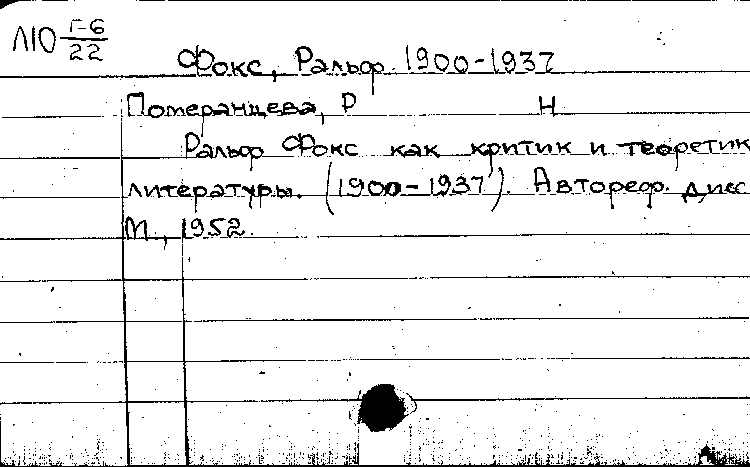 Л10 Г-6/22
Фокс, Ральф. 1900-1937
Померанцева, Р Н
Ральф Фокс как критик и теоретик
литературы. (1900-1937). Автореф. дисс
М., 1952.